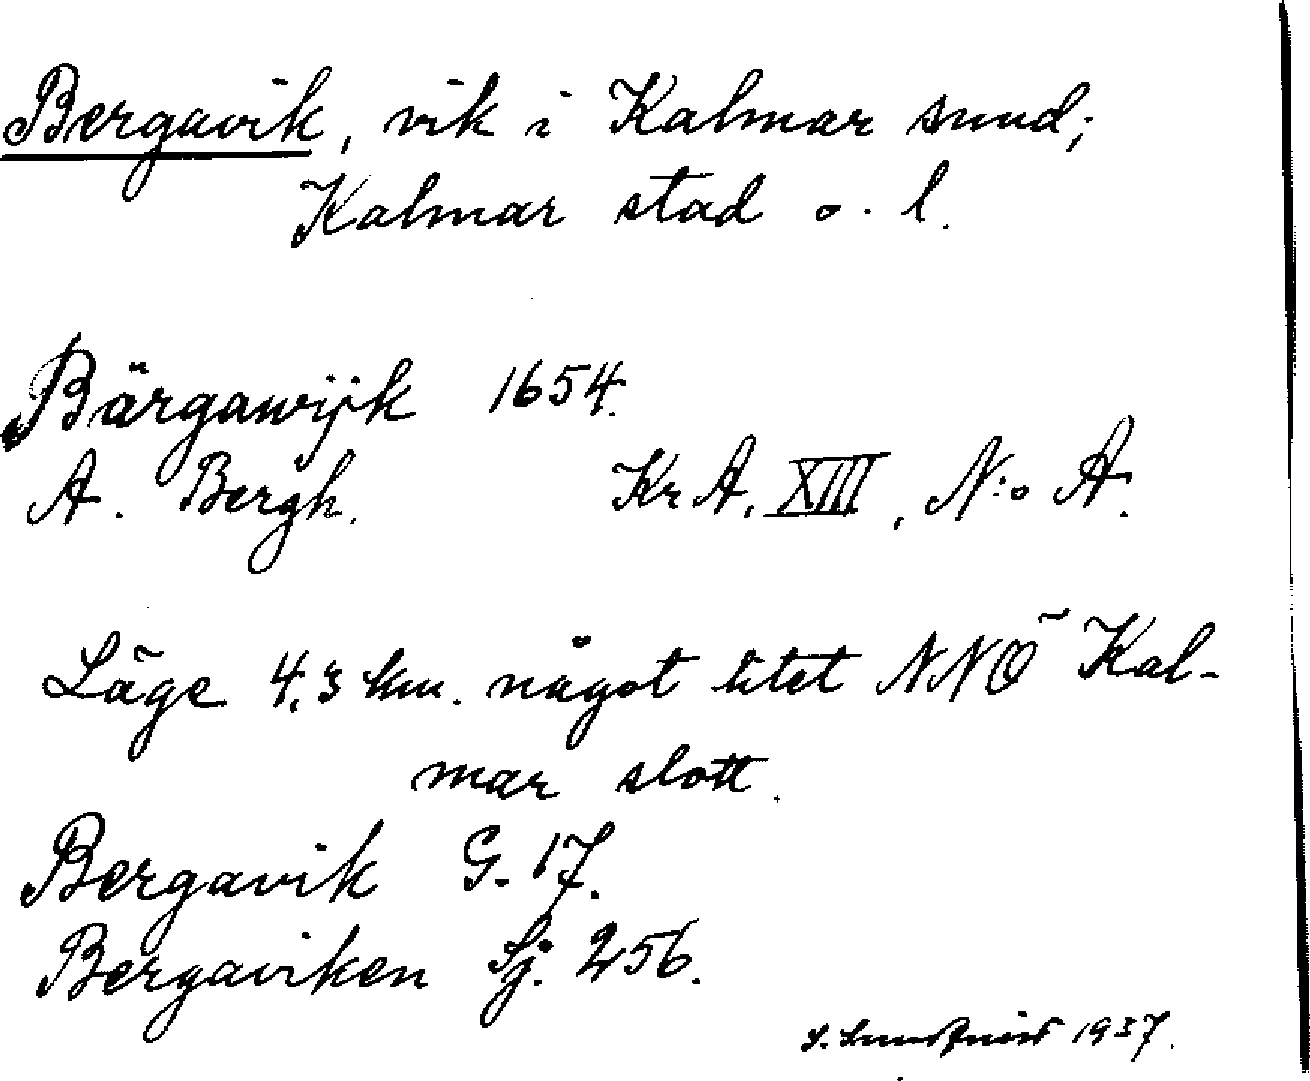 Bergavik, vik i Kalmar sund;
Kalmar stad o. l.
Bärgawijk 1654.
A. Bergh. KrA. XIII, N:o A.
Läge 4,3 km. något litet NNÖ Kal-
mar slott.
Bergavik G. 17.
Bergaviken Sj. 256.
1937.